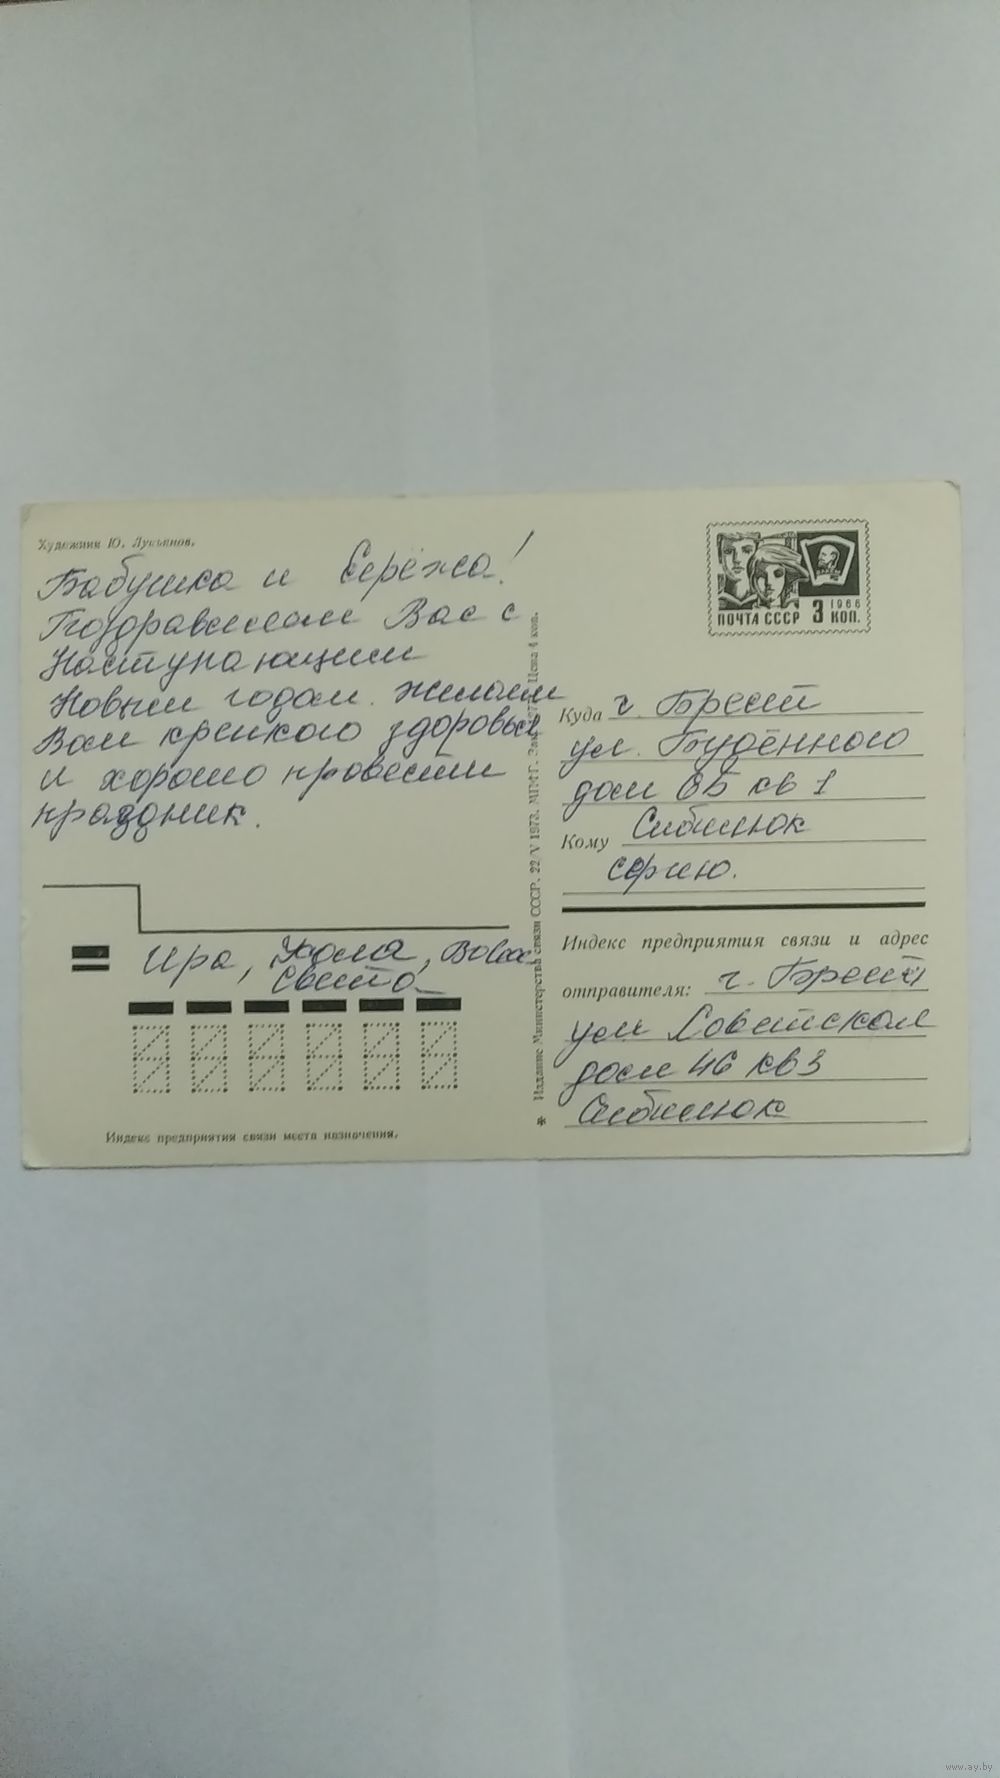 Художник Ю. Лукьянов.
Бабушка и Серёжа!
Поздравляем Вас с
Наступающим
Новым годом. Желаем
Вам крепкого здоровья
и хорошо провести
праздник.
Ира, Коля, Вова
Света
Индекс предприятия связи места назначения.
Издание Министерства связи СССР. 22/V 1973. МПФГ. Цена 4 коп.
ПОЧТА СССР 3 КОП.
1966
Куда г. Брест
ул. Будённого
дом 8Б кв 1
Кому Сибилюк
Индекс предприятия связи и адрес
отправителя: г. Брест
ул Советская
дом 46 кв 3
Сибилюк
www.ay.by